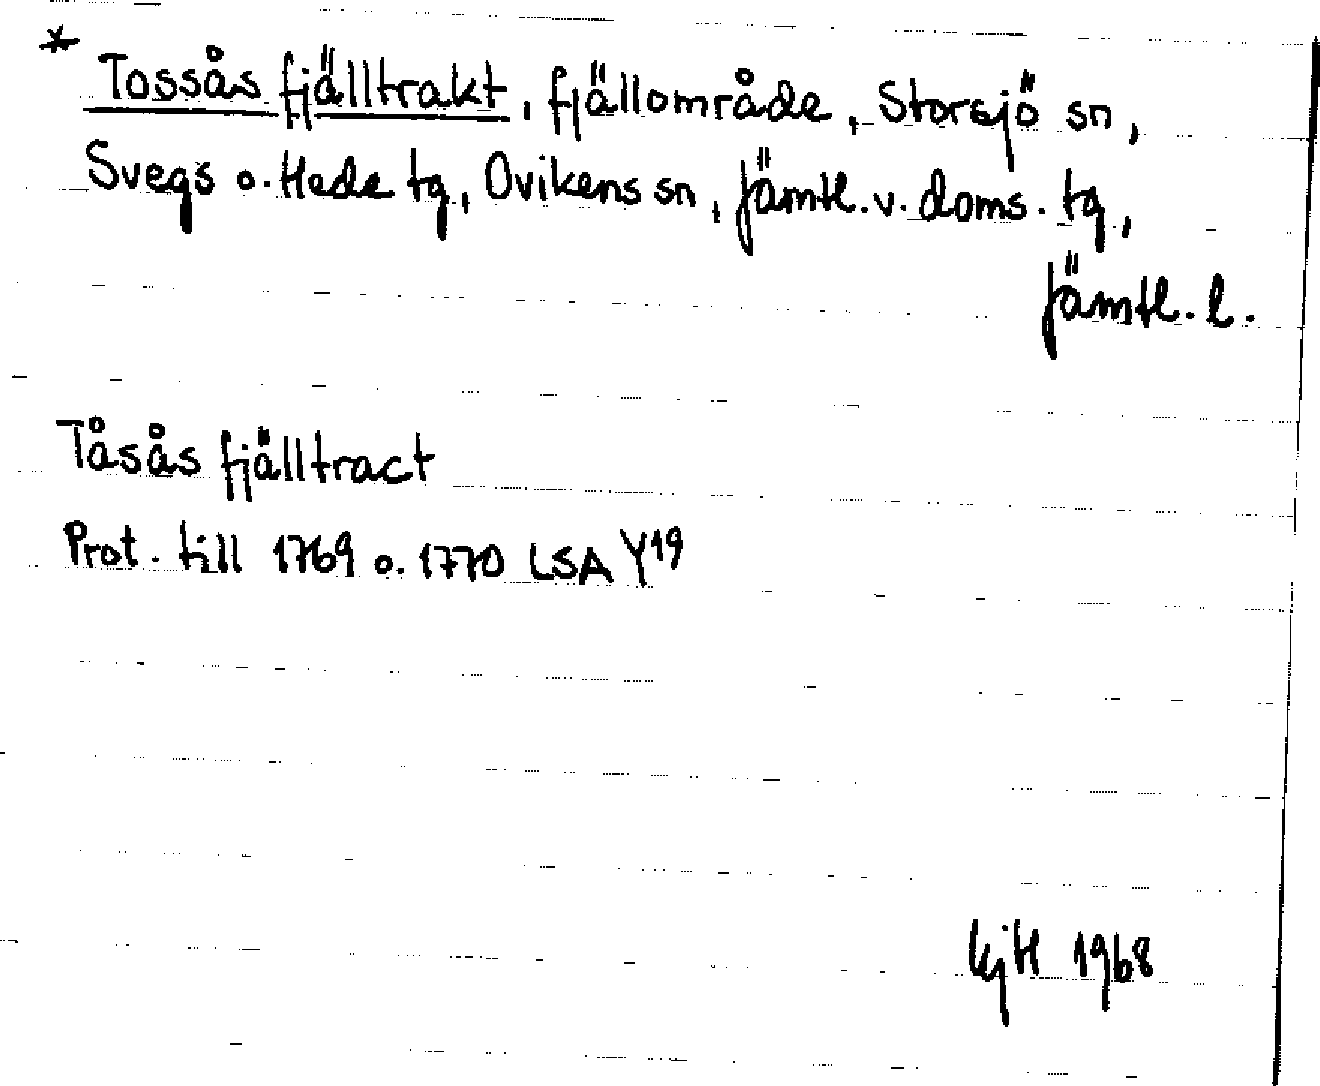 * Tossås fjälltrakt, fjällområde, Storsjö sn,
Svegs o. Hede tg, Ovikens sn, Jämtl. v. doms. tg,
Jämtl. l.
Tåsås fjälltract
Prot. till 1769 o. 1770 LSA Y19
KjH 1968